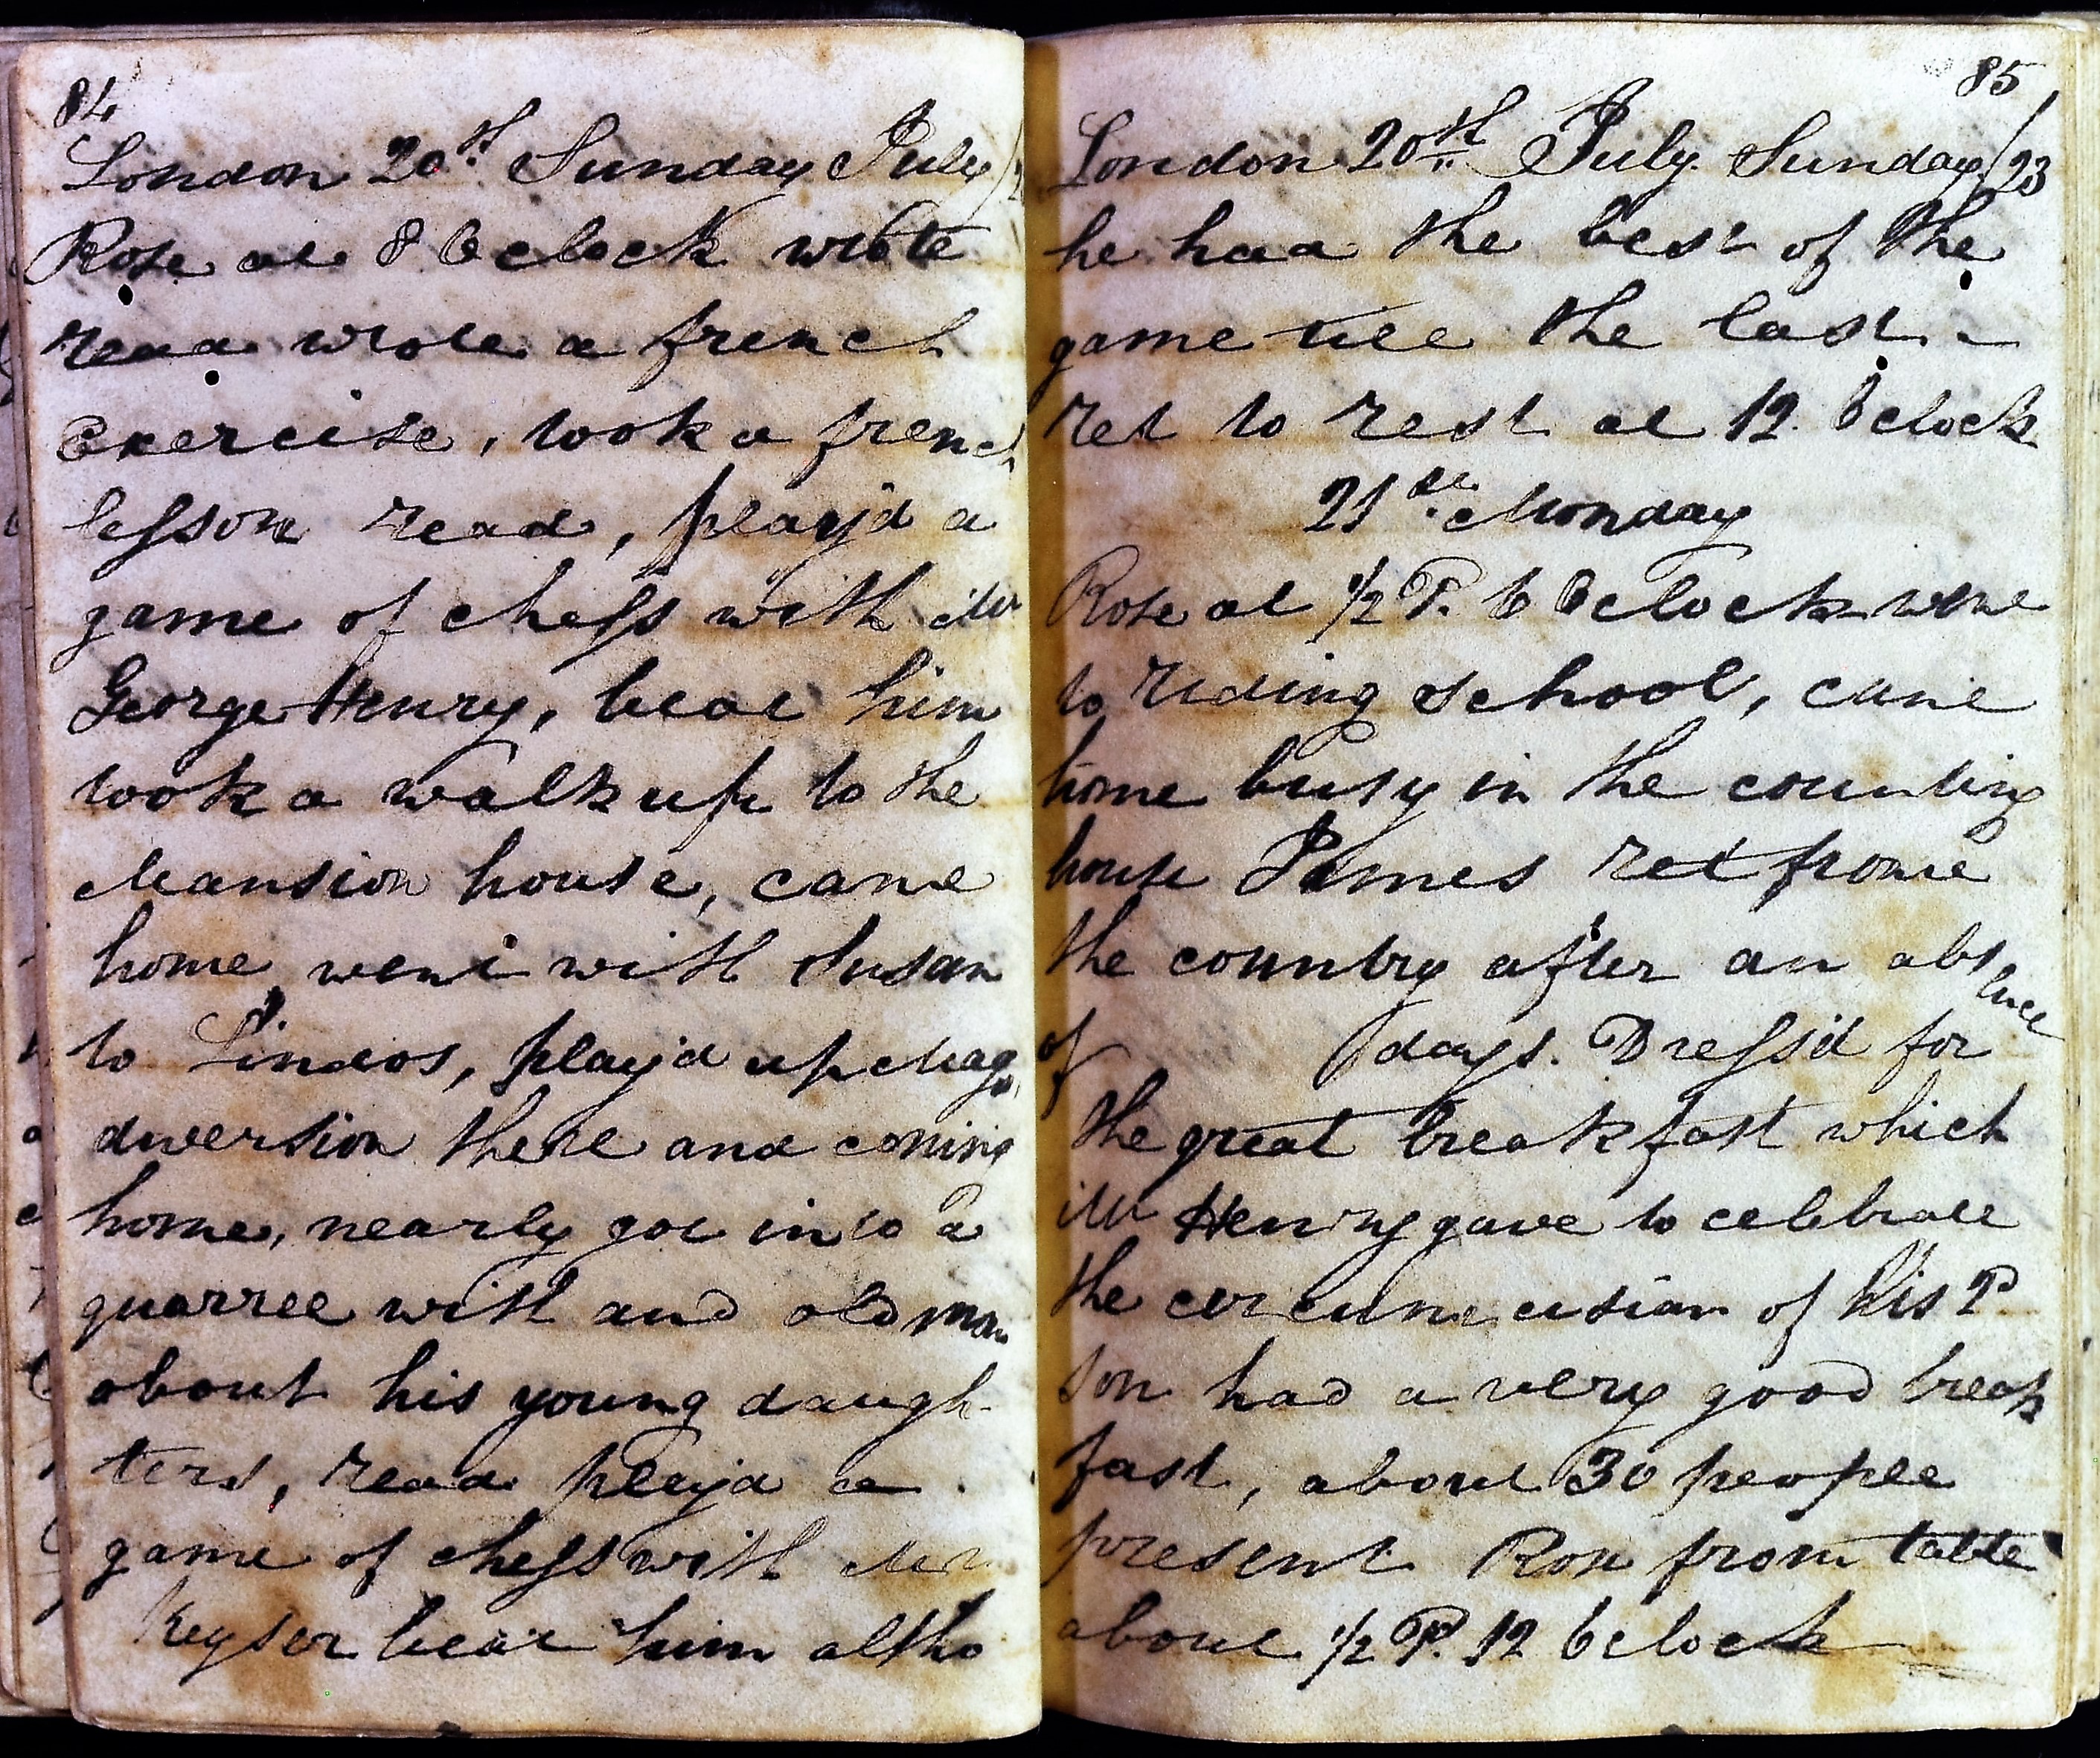 84
London 20th Sunday July
Rose at 8 Oclock wrote
read wrote a french
Exercise, took a french
lesson read, play'd a
game of chess with Mr
George Henry, beat him
took a walk up to the
Mansion house, came
home went with Susan
to Lindos, play'd up Mag.
diversion there and coming
home, nearly got into a
quarrel with and old man
about his young daugh-
ters, read play'd a
game of chess with Mr
Keyser beat him altho
85
London 20th July Sunday /23
he had the best of the
game till the last -
ret to rest at 12 Oclock
21st Monday
Rose at 1/2 P. 6 Oclock went
to riding school, came
home busy in the counting
house James ret from
the country after an absence
of days. Dress'd for
the great breakfast which
Mr Henry gave to celebrate
the circumcision of his
son had a very good break
fast, about 30 people
present Rose from table
about 1/2 P. 12 Oclock